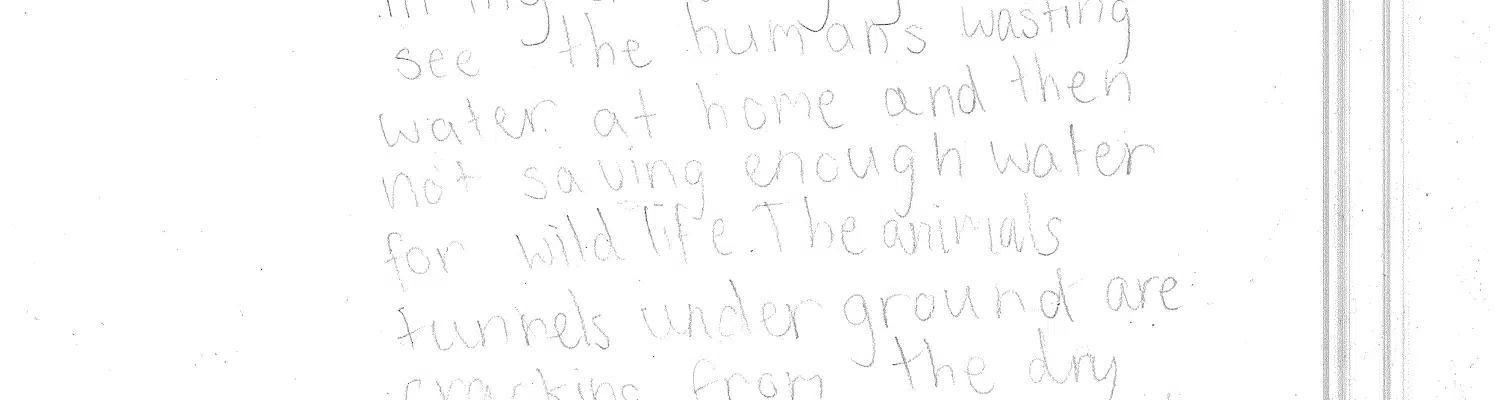 in my
see the humans wasting
water at home and then
not saving enough water
for wild life. The animals
tunnels under ground are
cracking from the dry